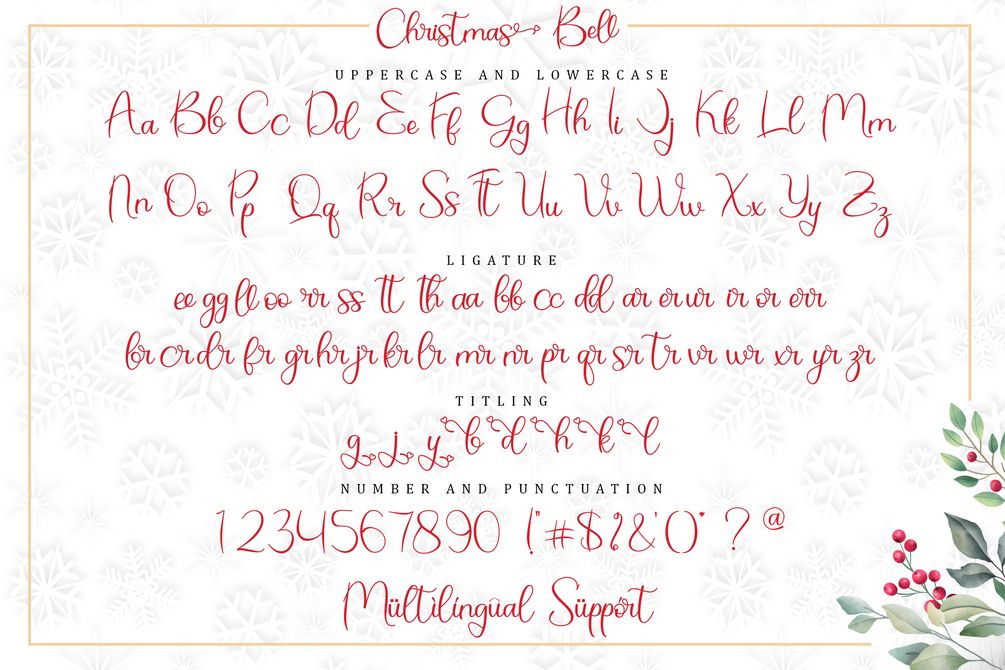 Christmas Bell
UPPERCASE AND LOWERCASE
Aa Bb Cc Dd Ee Ff Gg Hh Ii Jj Kk Ll Mm
Nn Oo Pp Qq Rr Ss Tt Uu Vv Ww Xx Yy Zz
LIGATURE
ee gg ll oo rr ss tt th aa bb cc dd ar er ur ir or err
br cr dr fr gr hr jr kr lr mr nr pr qr sr tr vr wr xr yr zr
TITLING
g j y b d h k l
NUMBER AND PUNCTUATION
1234567890 !"#$%&'()* ? @
Mültilíngüal Süppört